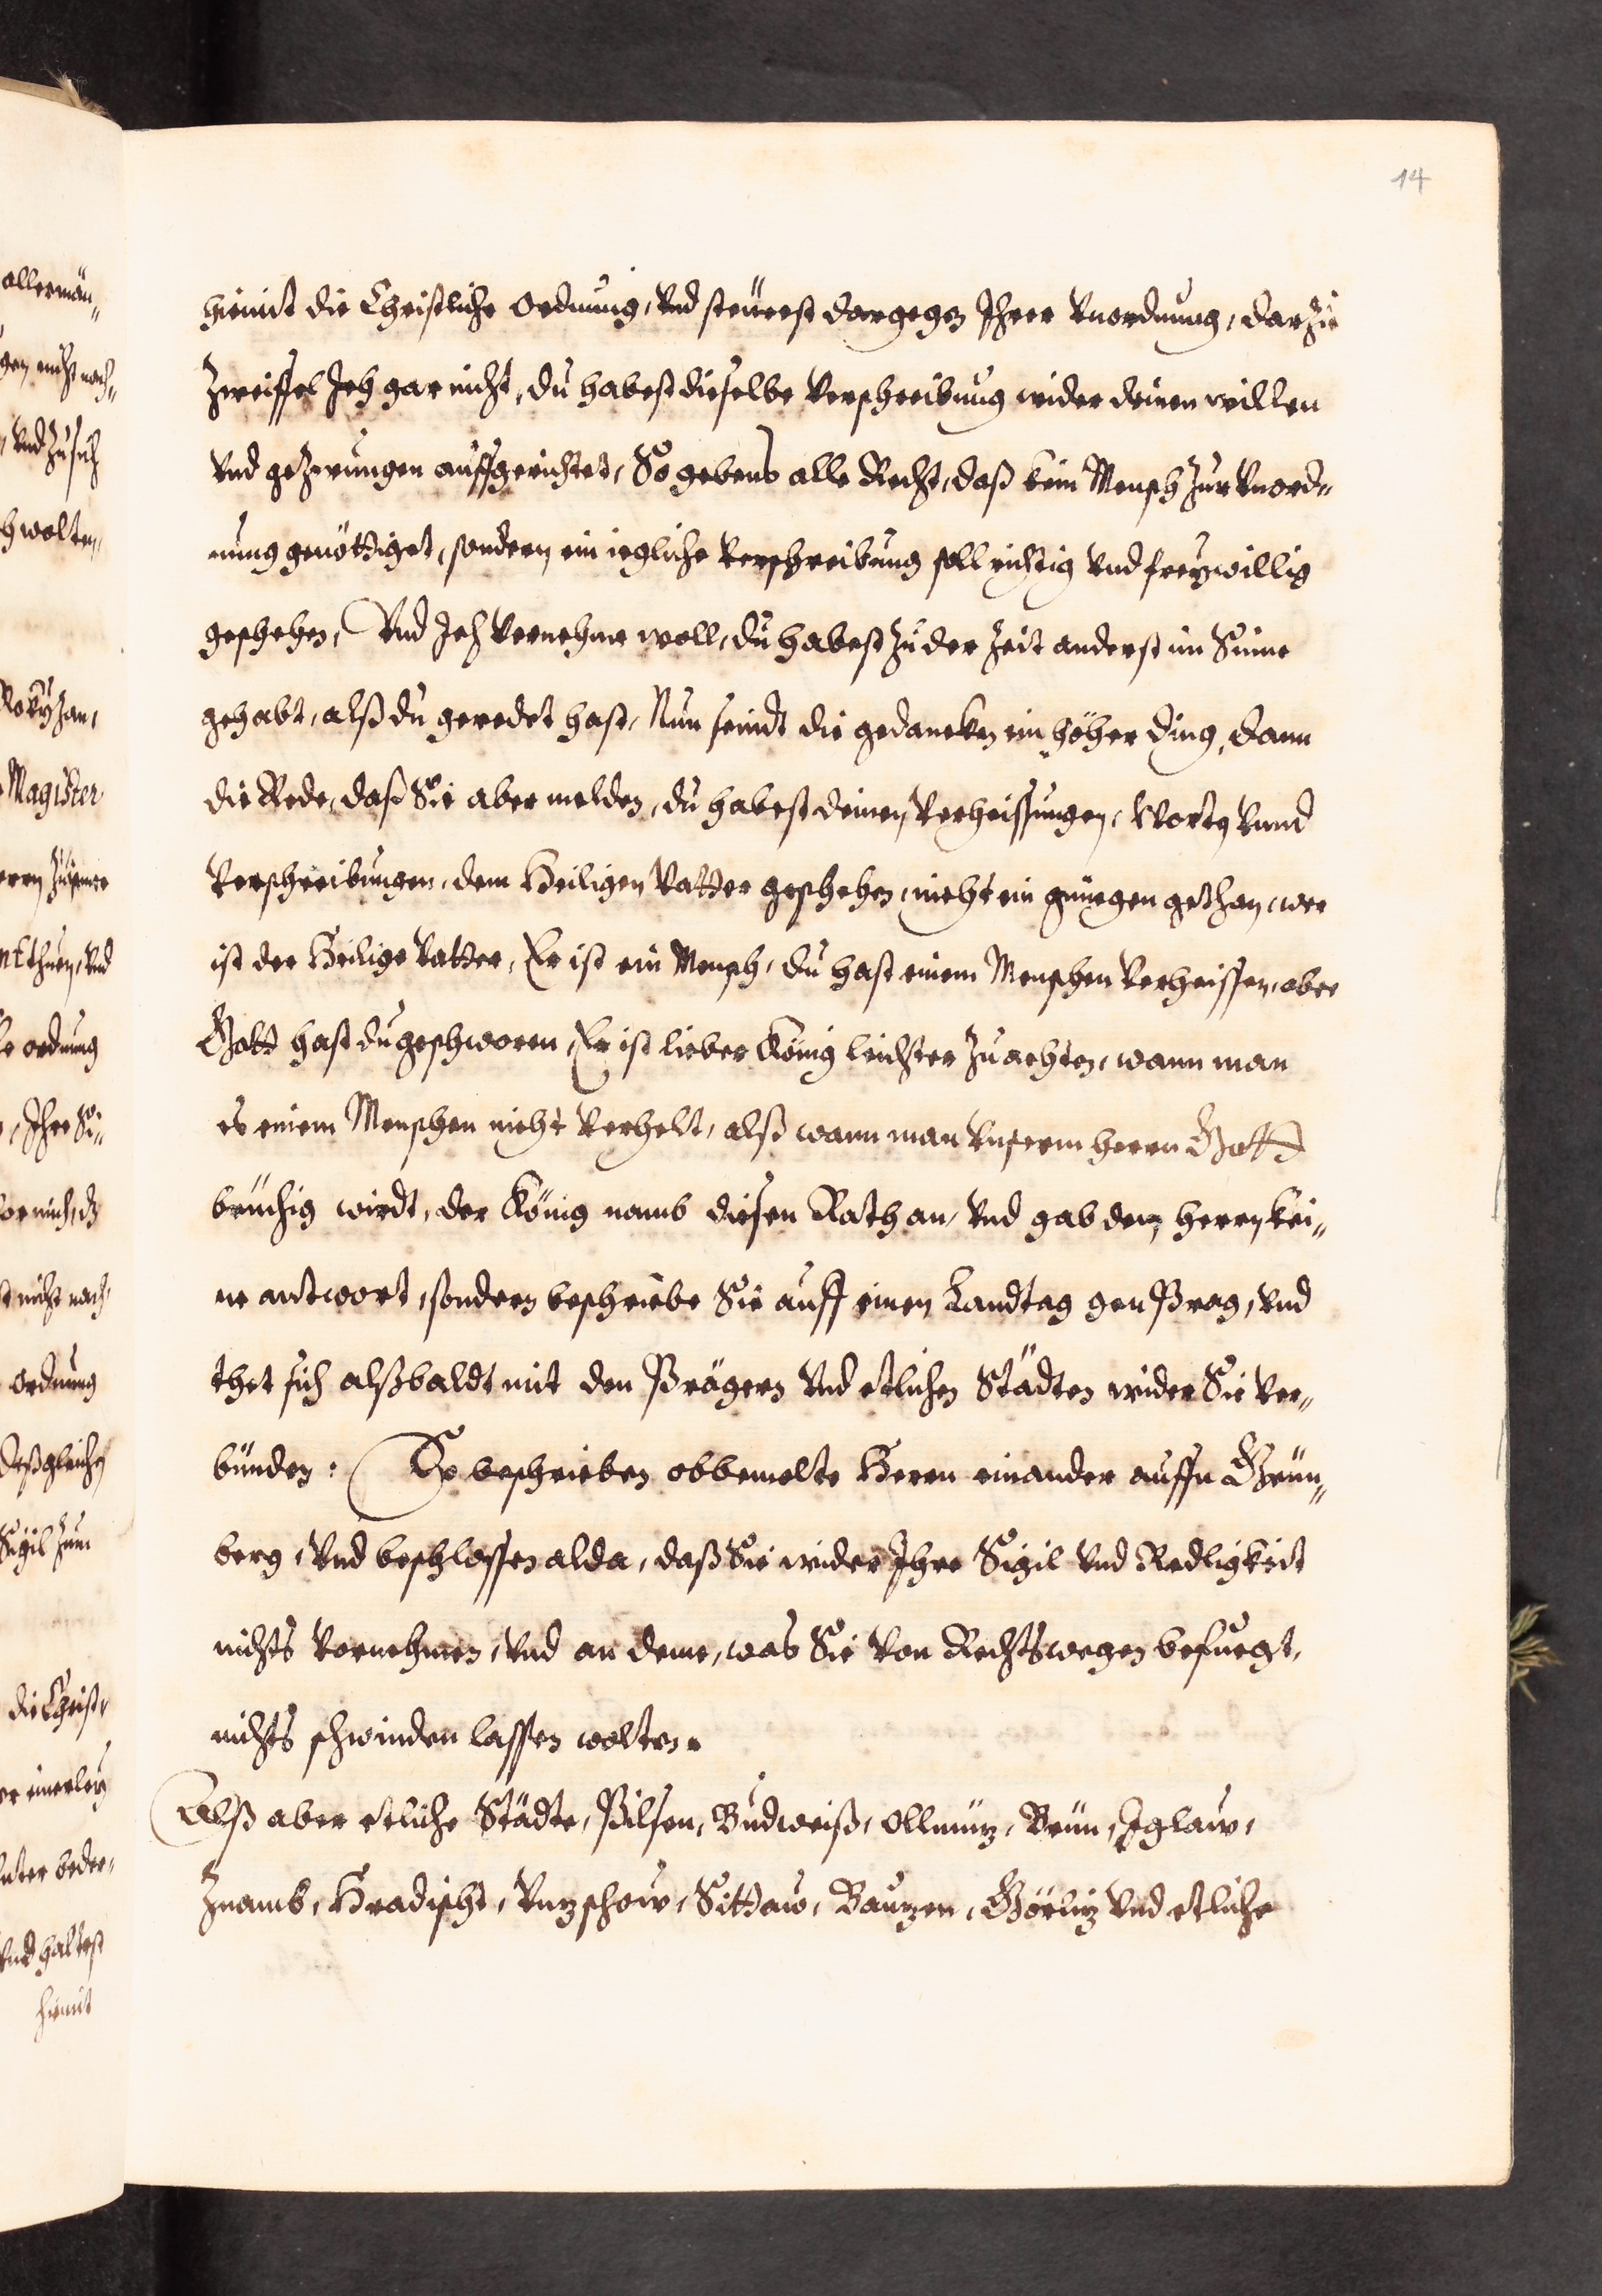 14
hiemit die Christliche Ordnung, Vnd steürest dargegen Ihrer Vnordnung, darzu
Zweiffel Ich gar nicht, du habest dieselbe Verschreibung wider deinen willen
Vnd gezwungen auffgerichtet, So gebens alle Recht, daß kein Mensch Zur Vnord=
nung genöttiget, sondern ein iegliche Verschreibung soll richtig Vnd freywillig
geschehen, Vnd Ich Vernehme woll, du habest Zu der Zeit anderst im Sinne
gehabt, alß du geredet hast, Nun seindt die gedancken ein höher ding, dann
die Rede, daß Sie aber melden, du habest deinen Verheissungen, Worten Vnnd
Verschreibungen, dem Heiligen Vatter geschehen, nicht ein genuegen gethan, wer
ist der Heilige Vatter, Er ist ein Mensch, du hast einem Menschen Verheissen, aber
Gott hast du geschworen, Er ist lieber König leichter Zu achten, wann man
es einem Menschen nicht Verhelt, alß wann man Vnserm herrn Gott
brüchig wirdt, der König namb diesen Rath an, Vnd gab den herrn kei=
ne antwort, sondern beschriebe Sie auff einen Landtag gen Prag, Vnd
thet sich alßbaldt mit den Prägern Vnd etlichen Städten wider Sie Ver=
bünden: So beschrieben obbemelte Herrn einander auffn Grün=
berg, Vnd beschlossen alda, daß Sie wider Ihre Sigil Vnd Redligkeit
nichts Vornehmen, Vnd an deme, was Sie Von Rechtswegen befuegt,
nichts schwinden lassen wolten.
Alß aber etliche Städte, Pilsen, Budweiß, Ollmütz, Brün, Iglaw,
Znamb, Hradischt, Vnzschow, Sittaw, Bautzen, Görlitz Vnd etliche